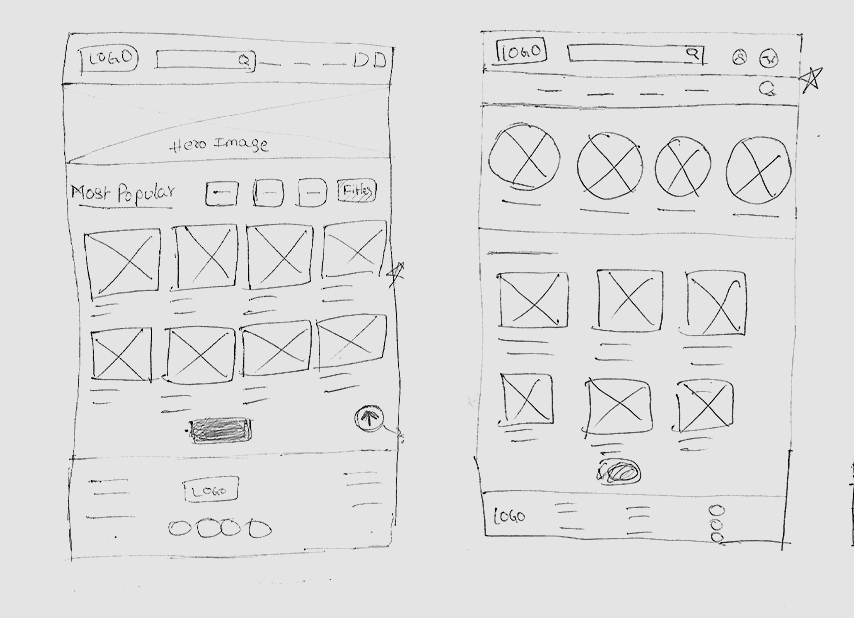 LOGO
Hero Image
Most Popular
Filter
LOGO
LOGO
LOGO